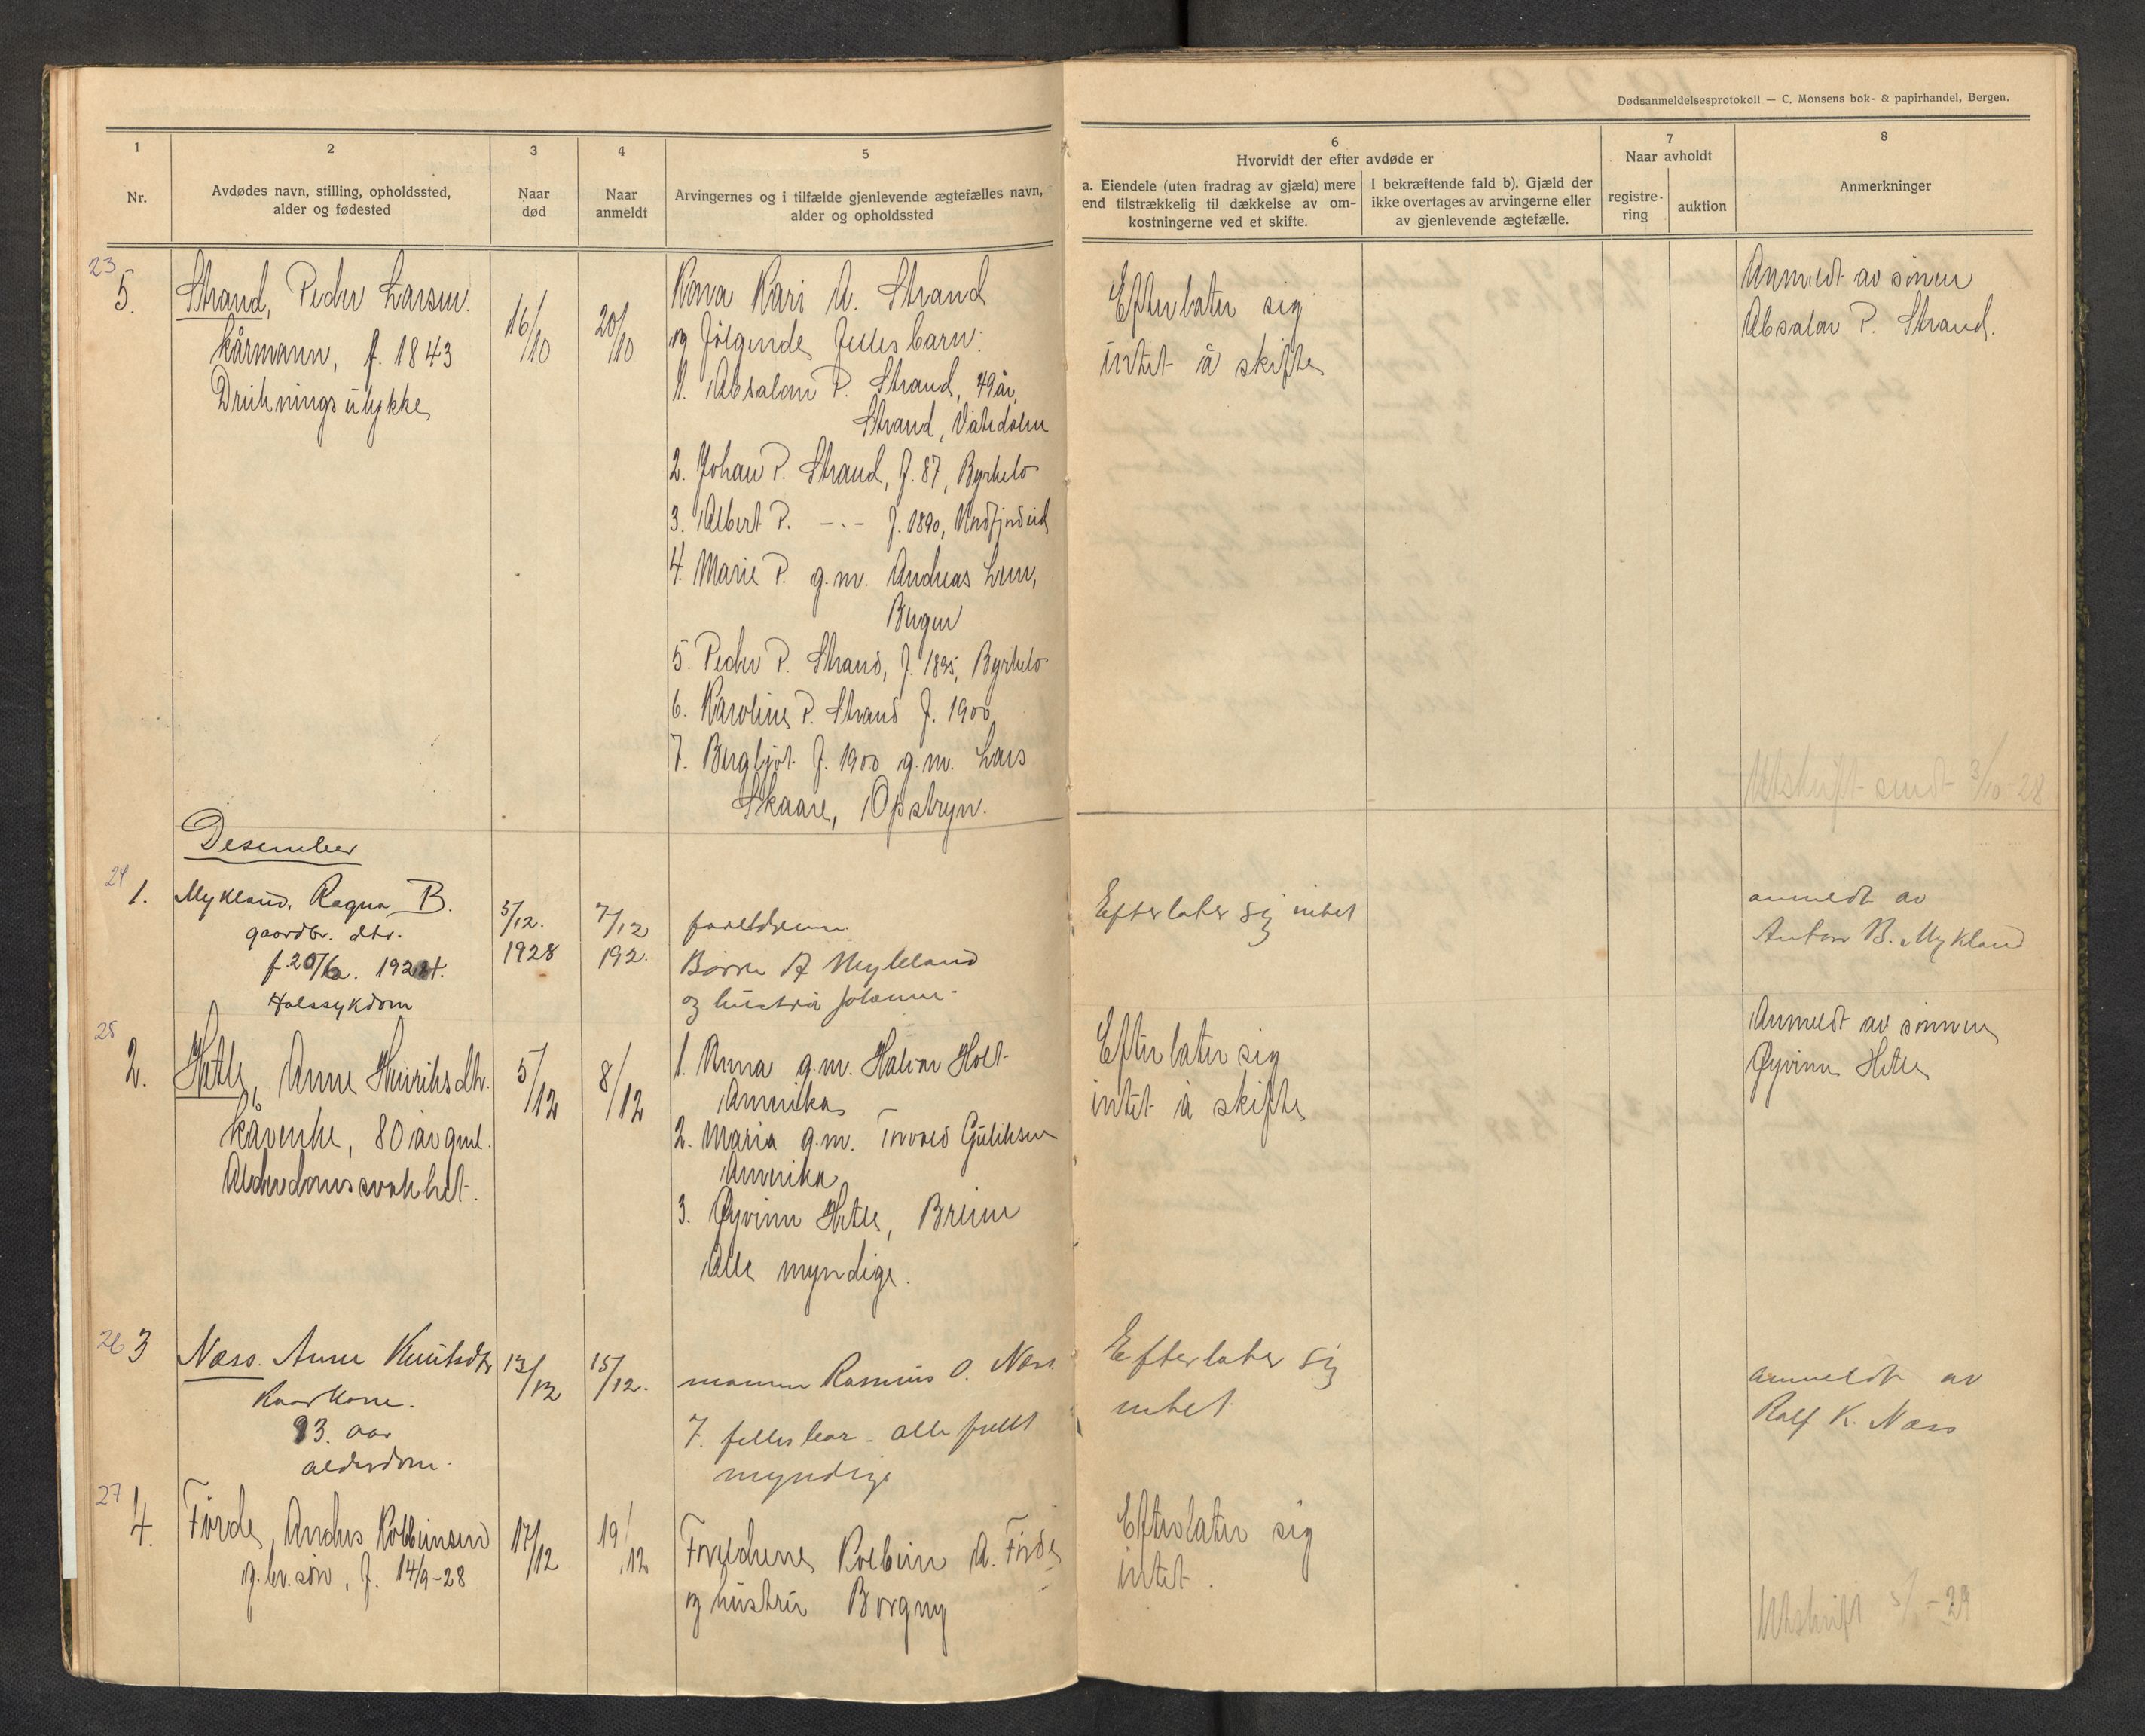 Dødsanmeldelsesprotokoll — C. Monsens bok- & papirhandel, Bergen.
1
Nr.
2
Avdødes navn, stilling, opholdssted,
alder og fødested
3
Naar
død
4
Naar
anmeldt
5
Arvingernes og i tilfælde gjenlevende ægtefælles navn,
alder og opholdssted
6
Hvorvidt der efter avdøde er
a. Eiendele (uten fradrag av gjæld) mere
end tilstrækkelig til dækkelse av om-
kostningerne ved et skifte.
I bekræftende fald b). Gjæld der
ikke overtages av arvingerne eller
av gjenlevende ægtefælle.
7
Naar avholdt
registre-
ring
auktion
8
Anmerkninger
23
5.
Strand, Peder Larsen.
kårmann, f. 1843
Drukningsulykke
16/10
20/10
Kona Kari A. Strand
og følgende fellesbarn:
1. Absalon P. Strand, 49 år,
Strand, Våtedalen
2. Johan P. Strand, f. 87, Byrkelo
3. Albert P. -.- f. 1890, Nordfjordeid
4. Marie P. g.m. Andreas
Bergen
5. Peder P. Strand, f. 1895, Byrkelo
6. Karoline P. Strand f. 1900
7. Bergljot f. 1900 g.m. Lars
Skaare, Opstryn.
Efterlater sig
intet å skifte
Anmeldt av sønnen
Absalon P. Strand.
Utskrift sendt 3/10-28
Desember
24
1.
Mykland, Ragna B.
gaardbr. dtr.
f. 20/
Halssykdom
5/12.
1928
7/12
192.
foreldrene
Børre A Myklland
og hustru Johanne
Efterlater sig intet
anmeldt av
Anton B. Mykland
25
2.
Hetle, Anne Henriksdtr.
kårenke, 80 år gml.
Alderdomssvakhet.
5/12
8/12
1. Anna g.m. Halvor Holt
Amerika
2. Maria g.m. Torvald Guliksen
Amerika
3. Øyvinn Hetle, Breim
Alle myndige.
Efterlater sig
intet å skifte
Anmeldt av sønnen
Øyvinn Hetle
26
3
Næss. Anne Knutsdtr
Kaarkone.
93. aar
alderdom.
13/12
15/12.
mannen Rasmus O. Næss
7. fellesbar - alle fullt
myndige
Efterlater sig
intet
anmeldt av
Ralf K. Næss
27
4.
Førde, Anders Kolbeinsen
g.br.søn, f. 14/9-28
17/12
19/12
Foreldrene Kolbein A. Førde
og hustru Borgny
Efterlater sig
intet.
Utskrift
-29